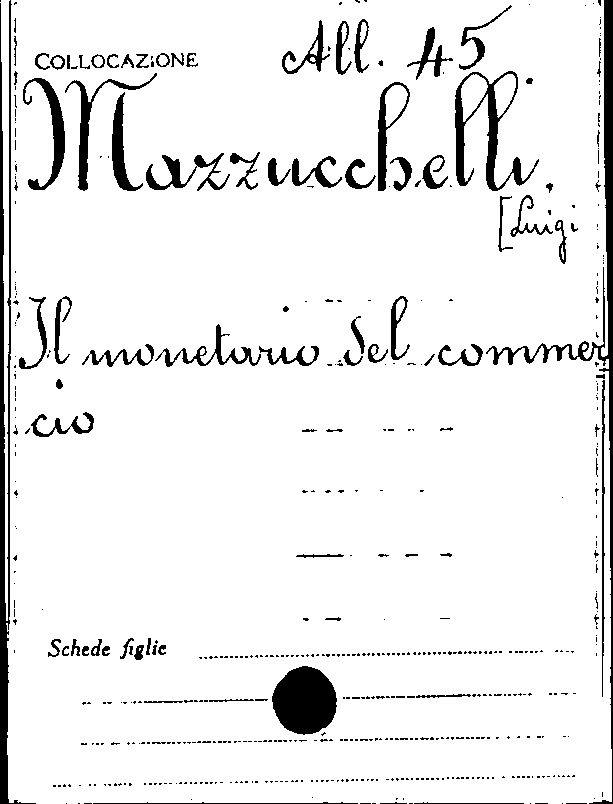 COLLOCAZIONE All. 45.
Mazzucchelli.
[Luigi
Il monetario del commer
cio
Schede figlie